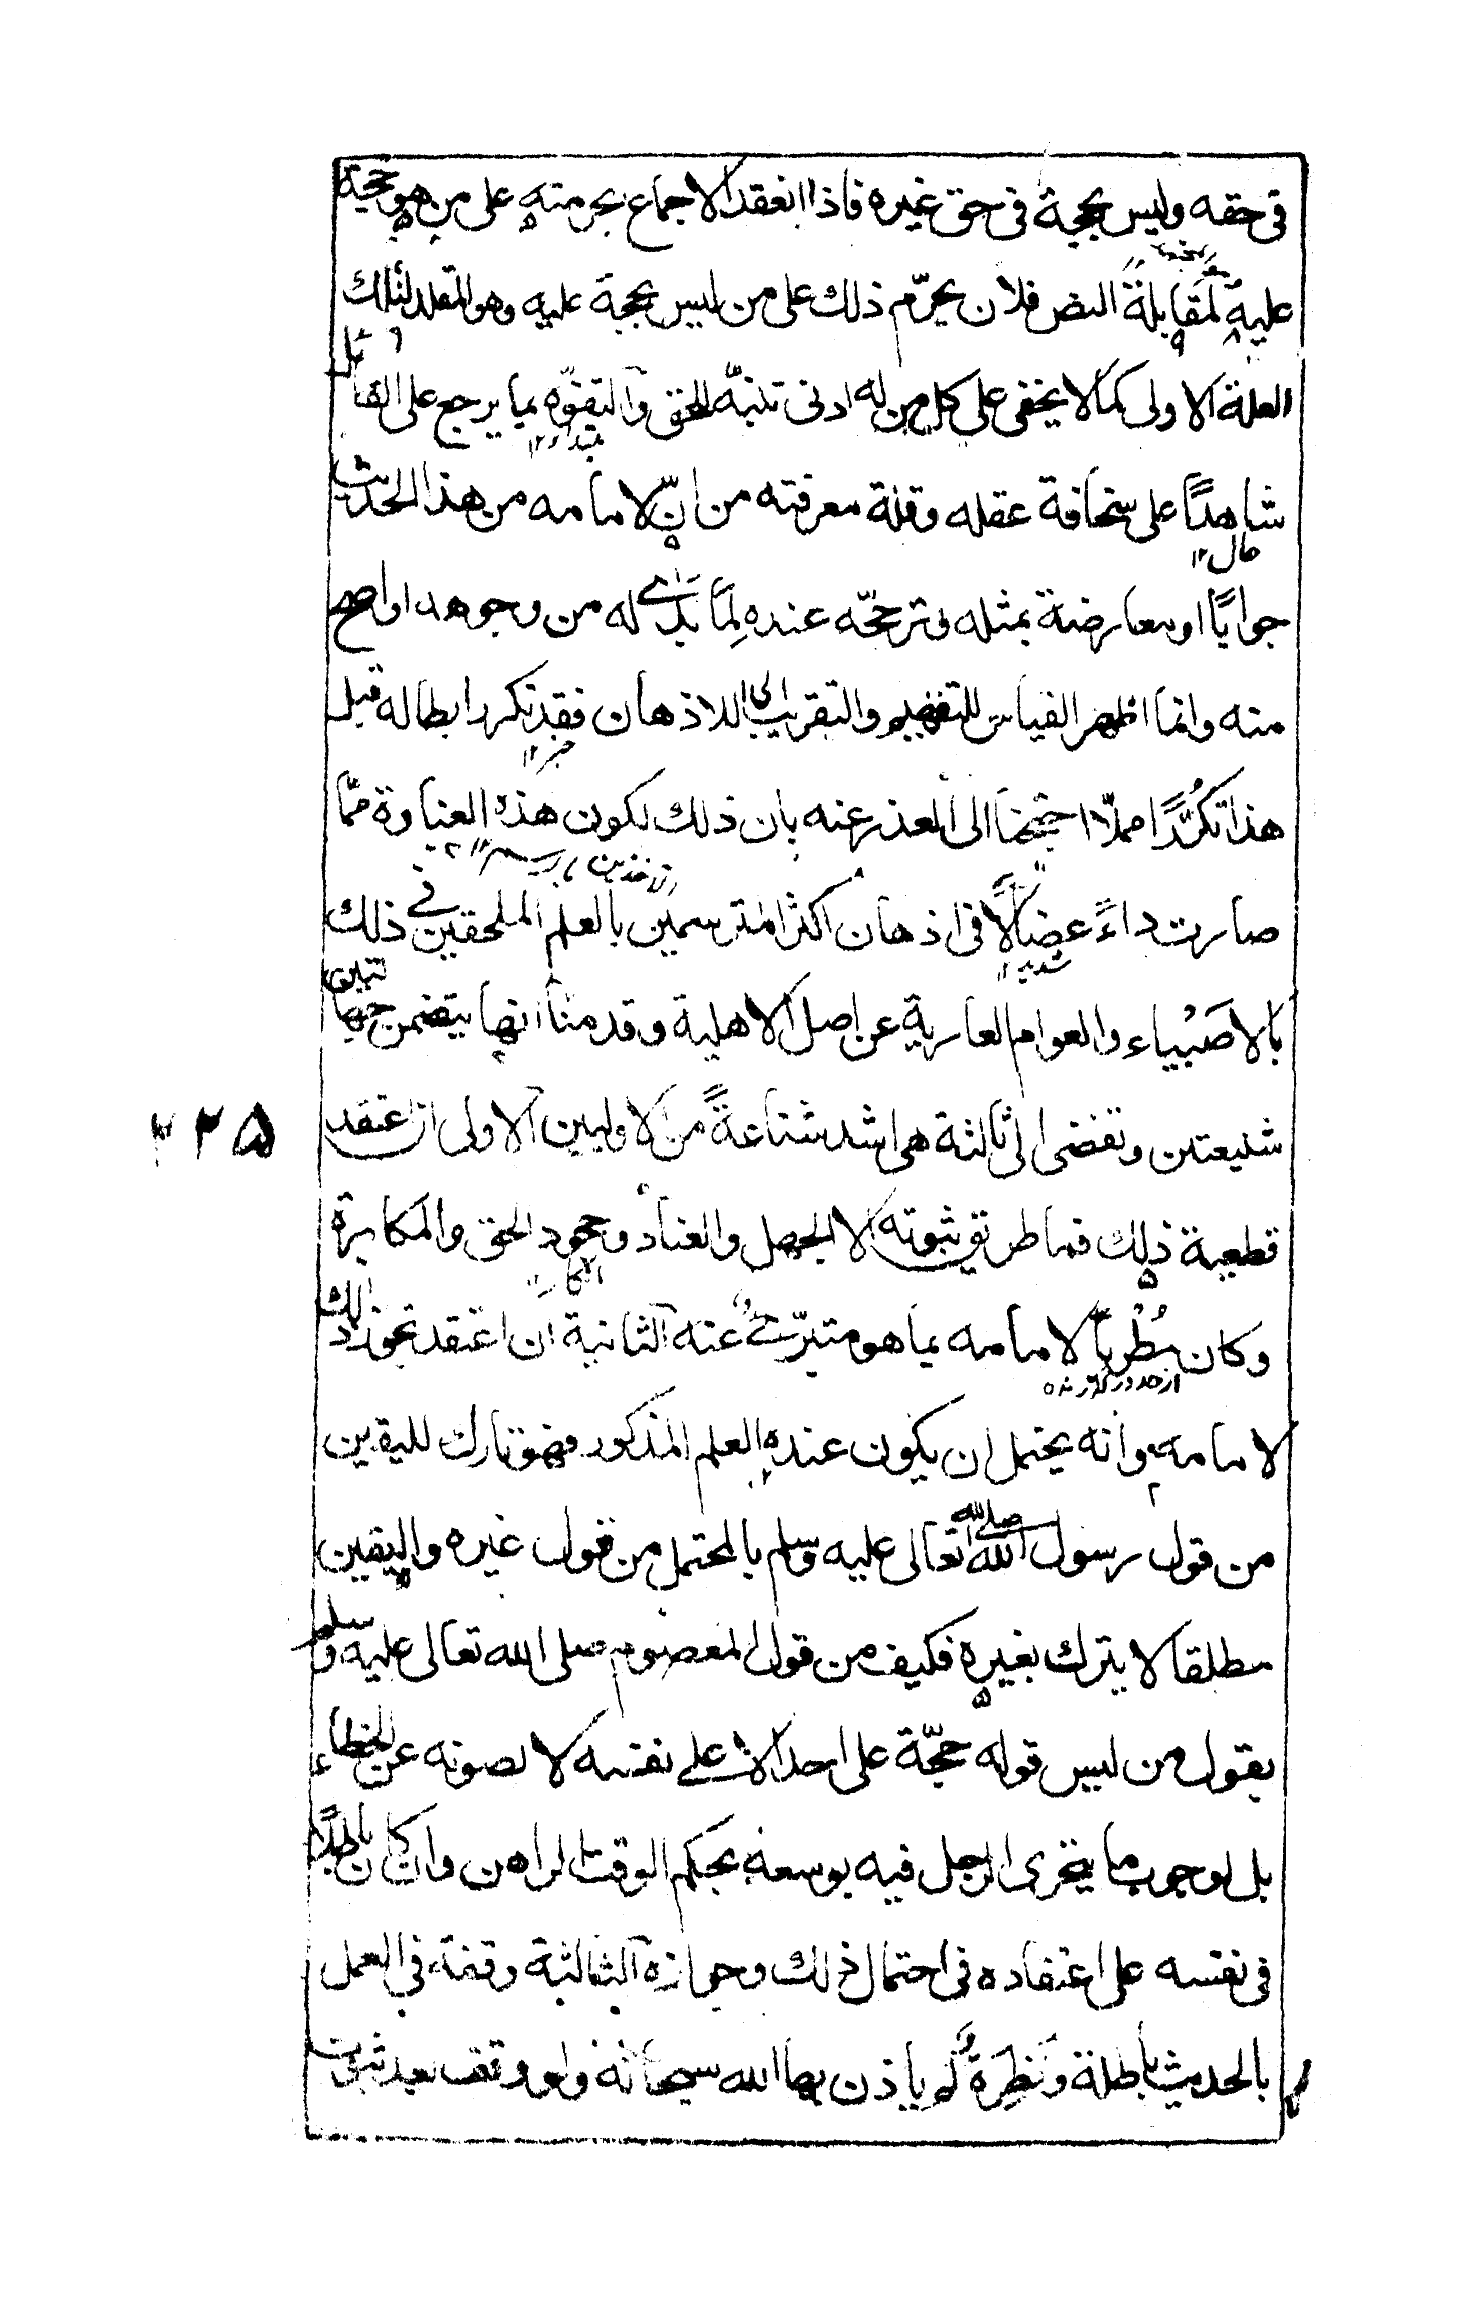 فى حقه وليس بحجة فى حق غيره فاذا انعقد الاجماع بحرمته على من هو حجة
عليه لمقابلة النص فلان يحرّم ذلك على من ليس بحجة عليه وهو المقلد لتلك
العلة الاولى كما لا يخفى على كل من له ادنى تنبّه للحق والتفوّه بما يرجع على القائل
مبتداء ١٢
شاهدًا على سخافة عقله وقلة معرفته من انّ لامامه من هذا الحديث
حال ١٢
جوابًا او معارضة بمثله وترجحّه عنده لِمَا بدٰے له من وجوه اواصح
منه وانما اظهر القياس للتفهيم والتقريب الى الاذهان فقد تكرر ابطاله قبل
خبر ١٢
هذا تكرُّرًا مملّا احتجنا الى العذر عنه بان ذلك لكون هذه الغباوة ممّا
صارت داءً عضالًا فى اذهان اكثر المترسمين بالعلم الملحقين فى ذلك
شديد ١٢
بالاصبياء والعوام العارية عن اصل الاهلية وقدمنا انها يتضمن جهالتين
شنيعتين وتفضى الى ثالثة هى اشد شناعةً من الاوليين الاولى ان اعتقد
٢٢٥
قطعية ذلك فما طريق ثبوته الا الجهل والعناد وجحود الحق والمكابرة
انكار ١٢
وكان مُطْرِيًا لامامه بما هو متبرّئٌ عنه الثانية ان اعتقد تجوز ذلك
از حد در گذرنده
لامامه وانه يحتمل ان يكون عنده العلم المذكور فهو تارك لليقين
من قول رسول الله صلى الله تعالى عليه وسلم بالمحتمل من قول غيره واليقين
مطلقا لا يترك بغيره فكيف من قول المعصوم صلى الله تعالى عليه وسلم
بقول من ليس قوله حجّة على احد الا على نفسه لا لصونه عن الخطاء
بل لوجوب ما يتحرى الرجل فيه بوسعه بحكم الوقت الراهن وان كان باطلًا
فى نفسه على اعتقاده فى احتمال ذلك وجوازه الثالثة وقفة فى العمل
بالحديث باطلة ونَظِرَةٌ لم ياذن بها الله سبحانه ولو وقف بعد ثبوت